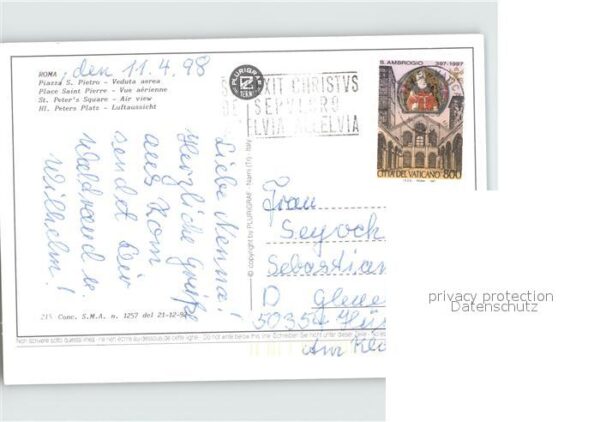 ROMA, den 11.4.98
Piazza S. Pietro - Veduta aerea
Place Saint Pierre - Vue aérienne
St. Peter's Square - Air view
Hl. Peters Platz - Luftaussicht
Liebe Nenna!
Herzliche Grüße
aus Rom
sendet Dir
Waltraud u.
Wilhelm!
215 Conc. S.M.A. n. 1257 del 21-12-94
Non scrivere sotto questa linea - ne rien écrire au dessous de cette ligne - Do not write below this line
PLURIGRAF
TERNI
© copyright by PLURIGRAF - Narni (Tr) - Italy
XIT CHRISTVS
DE SEPVLCRO
ALLELVIA
S. AMBROGIO 397-1997
CITTA DEL VATICANO 800
Frau
Seyoch
Sebastian
D
50354 Hür
Am
privacy protection
Datenschutz